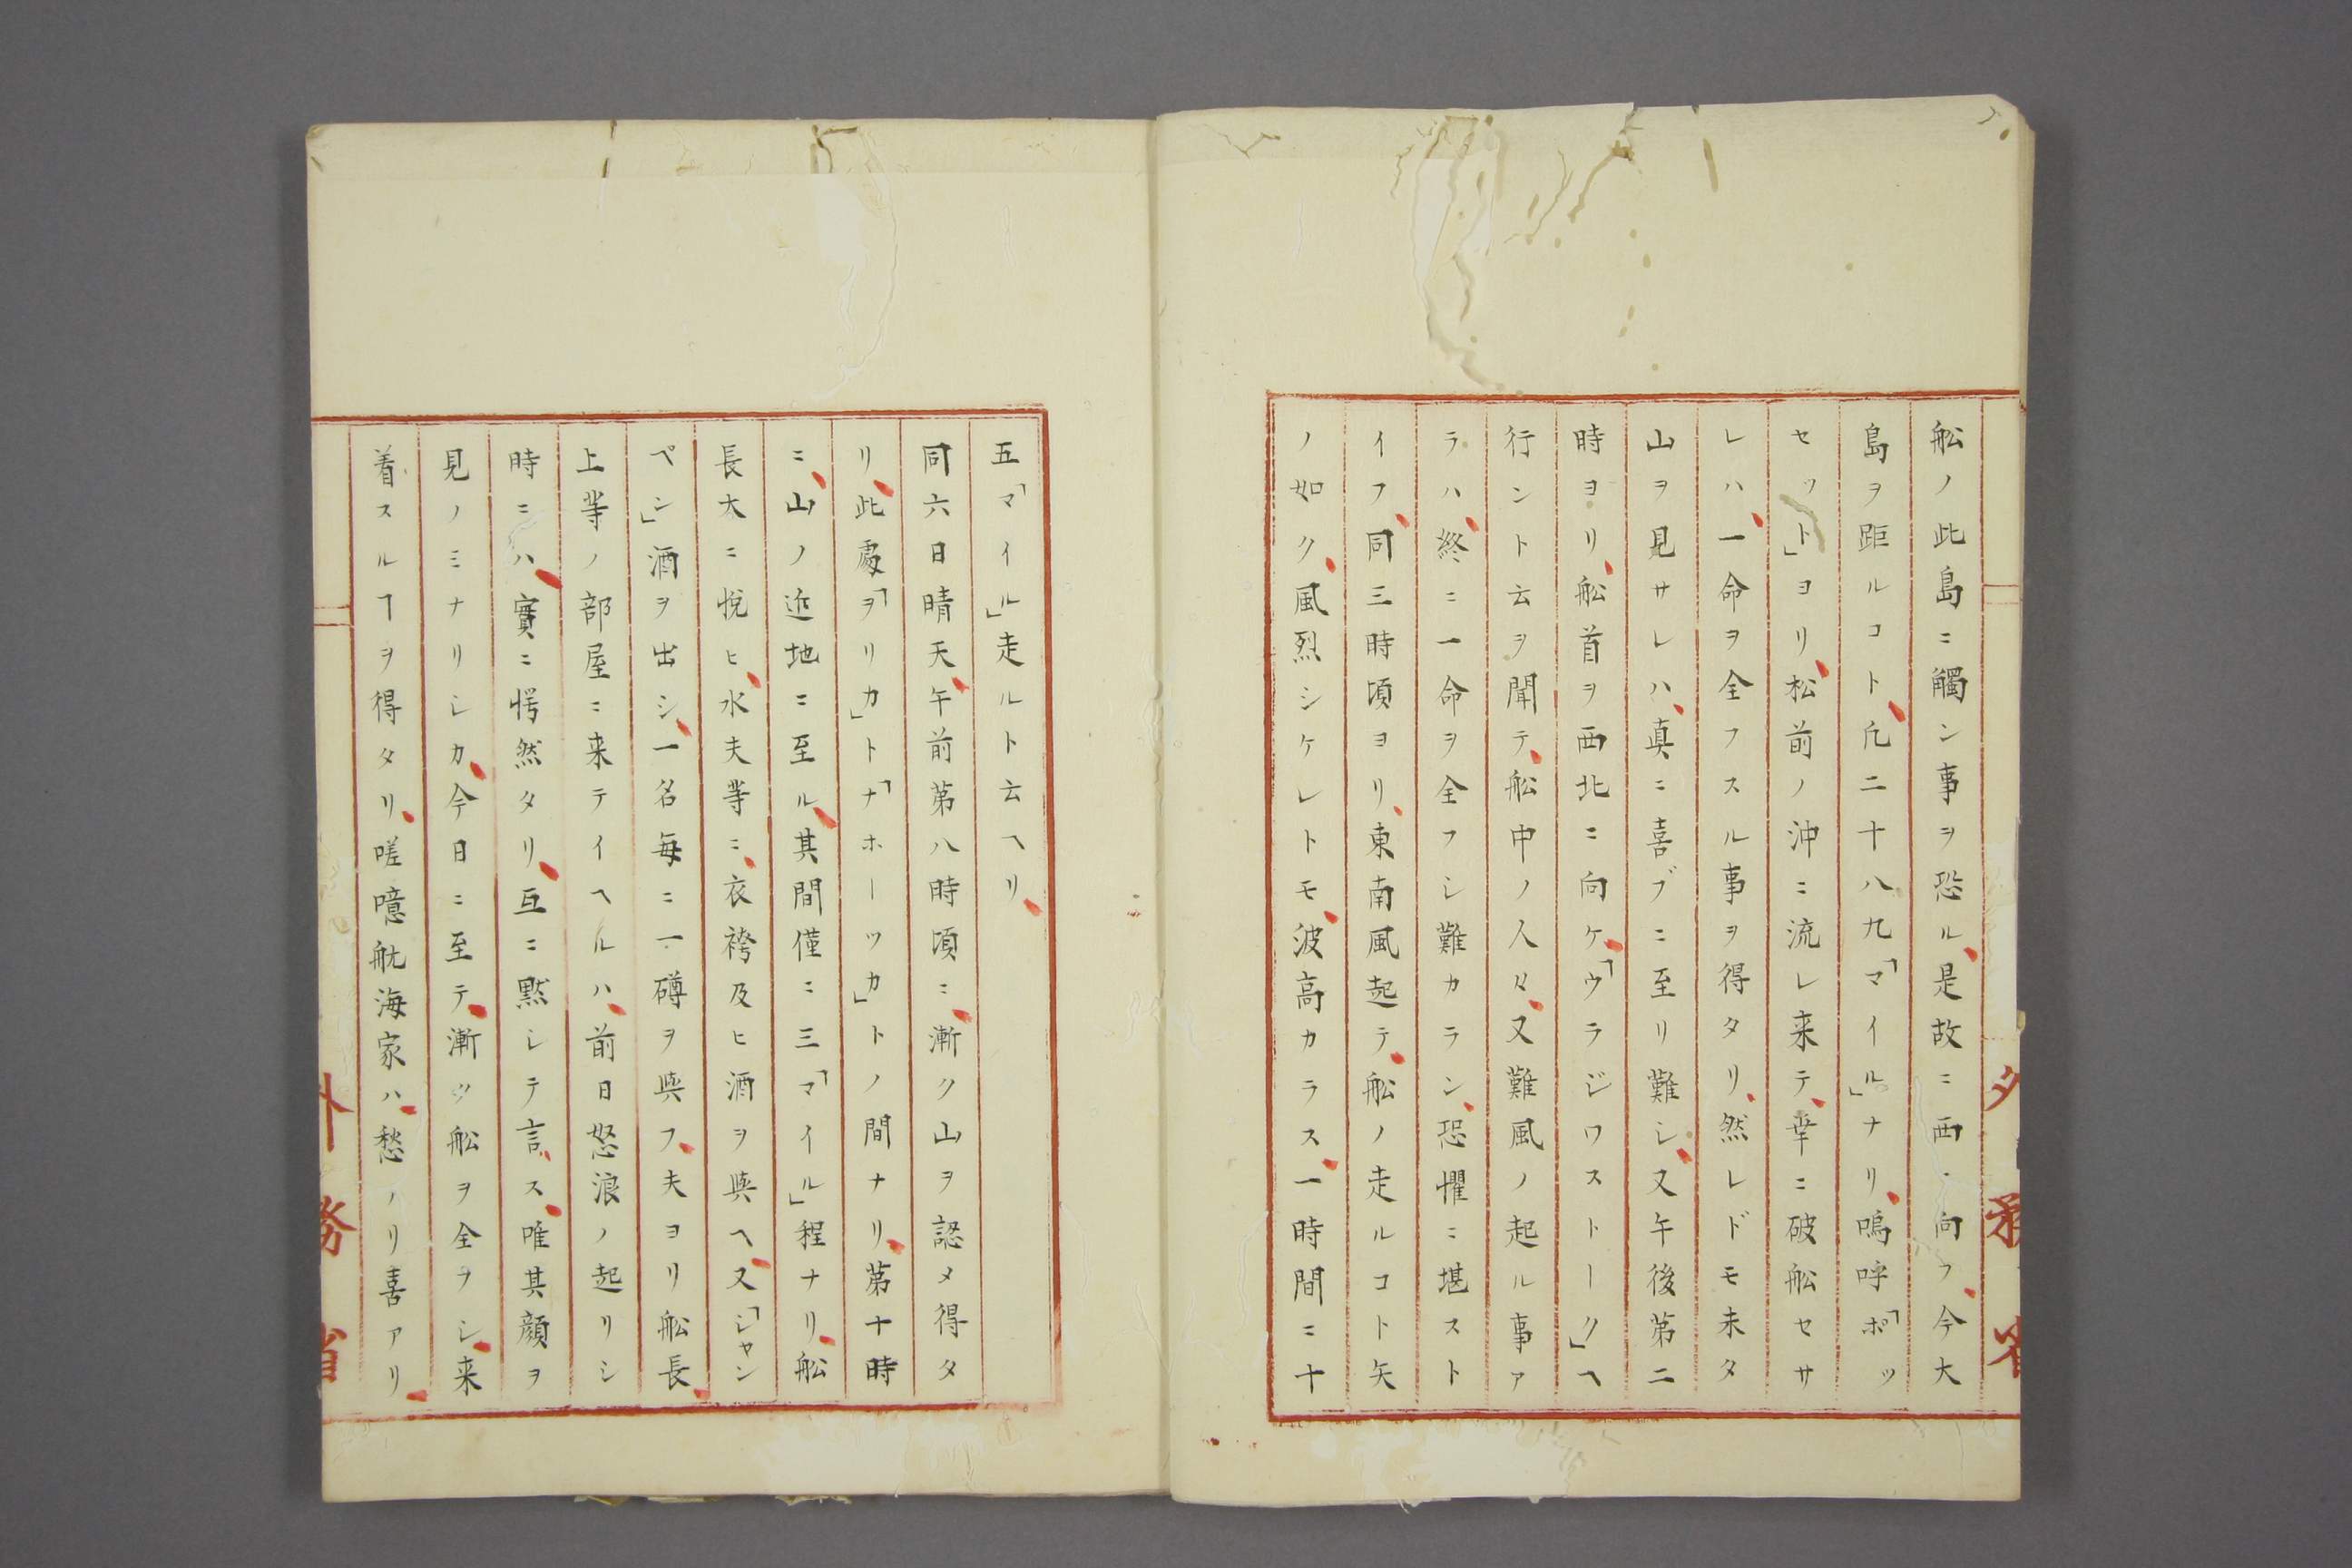 舩ノ此島ニ觸ン事ヲ恐ル、是故ニ西ニ向フ、今大
島ヲ距ルコト、凢二十八九「マイル」ナリ、嗚呼「ポッ
セット」ヨリ、松前ノ沖ニ流レ来テ、幸ニ破舩セサ
レハ、一命ヲ全フスル事ヲ得タリ、然レドモ未タ
山ヲ見サレハ、真ニ喜ブニ至リ難シ、又午後第二
時ヨリ、舩首ヲ西北ニ向ケ、「ウラジワストーク」ヘ
行ント云ヲ聞テ、舩中ノ人々、又難風ノ起ル事ア
ラハ、終ニ一命ヲ全フシ難カラン、恐懼ニ堪スト
イフ、同三時頃ヨリ、東南風起テ、舩ノ走ルコト矢
ノ如ク、風烈シケレトモ、波高カラス、一時間ニ十
五「マイル」走ルト云ヘリ、
同六日晴天、午前第八時頃ニ、漸ク山ヲ認メ得タ
リ、此處「ヲリカ」ト「ナホーツカ」トノ間ナリ、第十時
ニ、山ノ近地ニ至ル、其間僅ニ三「マイル」程ナリ、舩
長大ニ悦ヒ、水夫等ニ、衣袴及ヒ酒ヲ與ヘ、又「シャン
ペン」酒ヲ出シ、一名毎ニ一罇ヲ與フ、夫ヨリ舩長、
上等ノ部屋ニ来テイヘルハ、前日怒浪ノ起リシ
時ニハ、實ニ愕然タリ、互ニ黙シテ言ス、唯其顔ヲ
見ノミナリシカ、今日ニ至テ、漸ク舩ヲ全フシ、来
着スルヿヲ得タリ、嗟噫航海家ハ、愁ノリ喜アリ、
外務省
外務省